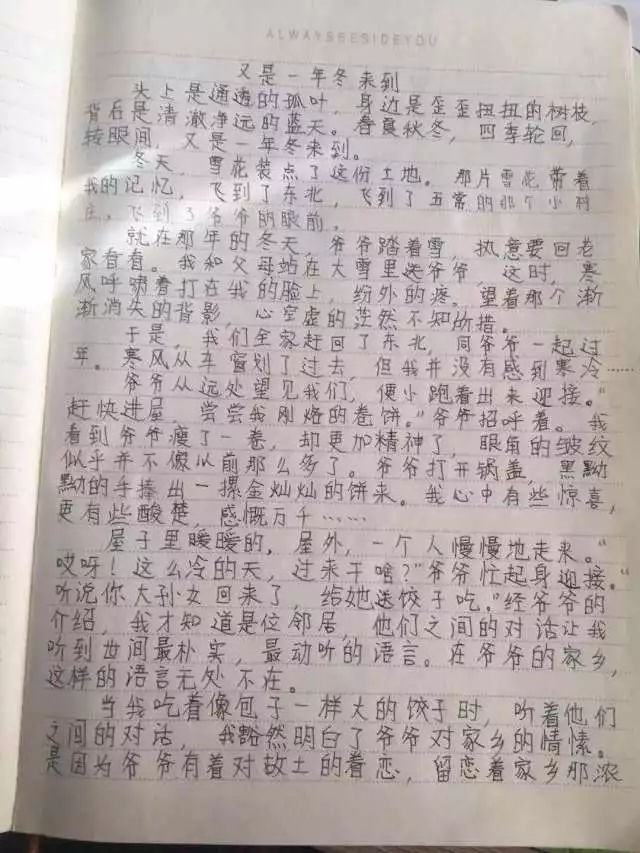 ALWAYSBESIDEYOU
又是一年冬来到
头上是通透的孤叶，身边是歪歪扭扭的树枝，
背后是清澈净远的蓝天。春夏秋冬，四季轮回，
转眼间，又是一年冬来到。
冬天，雪花装点了这份土地。那片雪花带着
我的记忆，飞到了东北，飞到了五常的那个小村
庄，飞到了爷爷的眼前。
就在那年的冬天，爷爷踏着雪，执意要回老
家看看。我和父母站在大雪里送爷爷，这时，寒
风呼啸着打在我的脸上，纷外的疼。望着那个渐
渐消失的背影，心空虚的茫然不知所措。
于是，我们全家赶回了东北，同爷爷一起过
年。寒风从车窗划了过去，但我并没有感到寒冷……
爷爷从远处望见我们，便小跑着出来迎接。“
赶快进屋，尝尝我刚烙的卷饼。”爷爷招呼着。我
看到爷爷瘦了一卷，却更加精神了，眼角的皱纹
似乎并不像以前那么多了。爷爷打开锅盖，黑黝
黝的手捧出一摞金灿灿的饼来。我心中有些惊喜，
更有些酸楚，感慨万千……
屋子里暖暖的，屋外，一个人慢慢地走来。“
哎呀！这么冷的天，过来干啥？”爷爷忙起身迎接。“
听说你大孙女回来了，给她送饺子吃。”经爷爷的
介绍，我才知道是位邻居，他们之间的对话让我
听到世间最朴实，最动听的语言。在爷爷的家乡，
这样的语言无处不在。
当我吃着像包子一样大的饺子时，听着他们
之间的对话，我豁然明白了爷爷对家乡的情愫。
是因为爷爷有着对故土的眷恋，留恋着家乡那浓